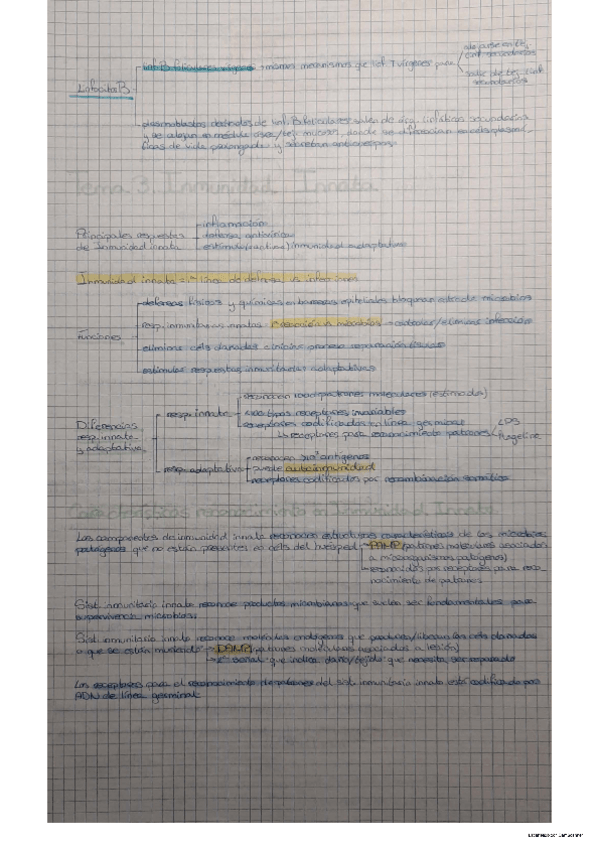 linf. B foliculares vírgenes → mismos mecanismos que linf. T vírgenes para
Linfocitos B
plasmoblastos derivados de linf. B foliculares → salen de órg. linfáticos secundarios
y se alojan en médula ósea/tej. mucosos, donde se diferencian en céls plasmá-
ticas de vida prolongada y secretan anticuerpos
Tema 3. Inmunidad Innata
Principales respuestas
de Inmunidad innata
inflamación
defensa antivírica
estimula inmunidad adaptativa
Inmunidad innata = 1ª línea de defensa vs infecciones
Funciones
defensas físicas y químicas en barreras epiteliales bloquean entrada microbios
resp. inmunitarias innatas microbios → controlar/eliminar infección
elimina céls dañadas e inicia proceso reparación
estimular respuestas inmunitarias adaptativas
Diferencias
resp. innata
y adaptativa
resp. innata
reconocen patrones moleculares (estimado)
tipos receptores invariables
receptores codificados en línea germinal
↳ receptores para reconocimiento patrones
LPS
flagelina
resp. adaptativa
reconocen antígenos
puede autoinmunidad
receptores codificados por recombinación somática
Características reconocimiento en Inmunidad Innata
Los componentes de inmunidad innata reconocen estructuras características de los microbios
patógenos que no están presentes en céls del huésped → PAMP (patrones moleculares asociados
a microorganismos patógenos)
reconocidos por receptores para reco-
nocimiento de patrones
Sist. inmunitario innato reconoce productos microbianos que suelen ser fundamentales para
supervivencia microbios
Sist. inmunitario innato reconoce moléculas endógenas que producen/liberan las céls dañadas
o que se están muriendo → DAMP (patrones moleculares asociados a lesión)
señal que indica daño/tejido que necesita ser reparado
Los receptores para el reconocimiento de patrones del sist. inmunitario innato están codificados por
ADN de línea germinal